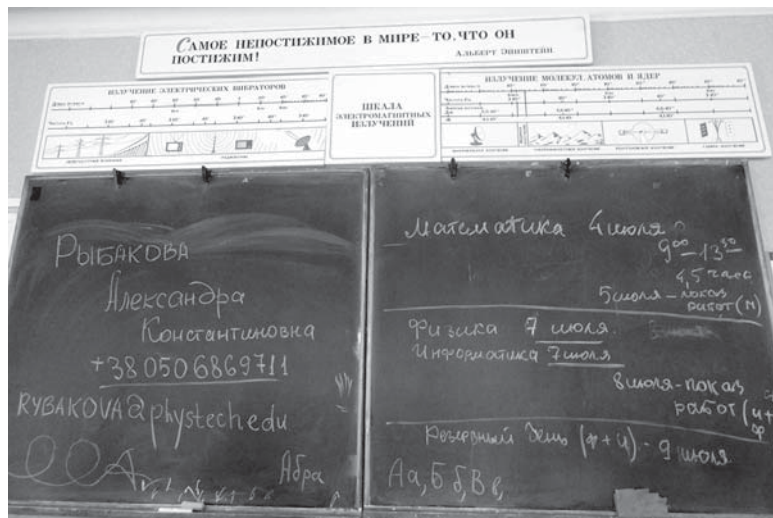 САМОЕ НЕПОСТИЖИМОЕ В МИРЕ – ТО, ЧТО ОН
ПОСТИЖИМ!
АЛЬБЕРТ ЭЙНШТЕЙН
ИЗЛУЧЕНИЕ ЭЛЕКТРИЧЕСКИХ ВИБРАТОРОВ
ШКАЛА
ЭЛЕКТРОМАГНИТНЫХ
ИЗЛУЧЕНИЙ
ИЗЛУЧЕНИЕ МОЛЕКУЛ, АТОМОВ И ЯДЕР
РЫБАКОВА
Александра
Константиновна
+380506869711
RYBAKOVA@phystech.edu
Абра
Математика 4 июля
9⁰⁰ – 13³⁰
4,5 часа
5 июля – показ
работ (М)
Физика 7 июля.
Информатика 7 июля
8 июля – показ
работ (и+
ф
Резервный день (ф + и) - 9 июля
Аа, Бб, Вв,